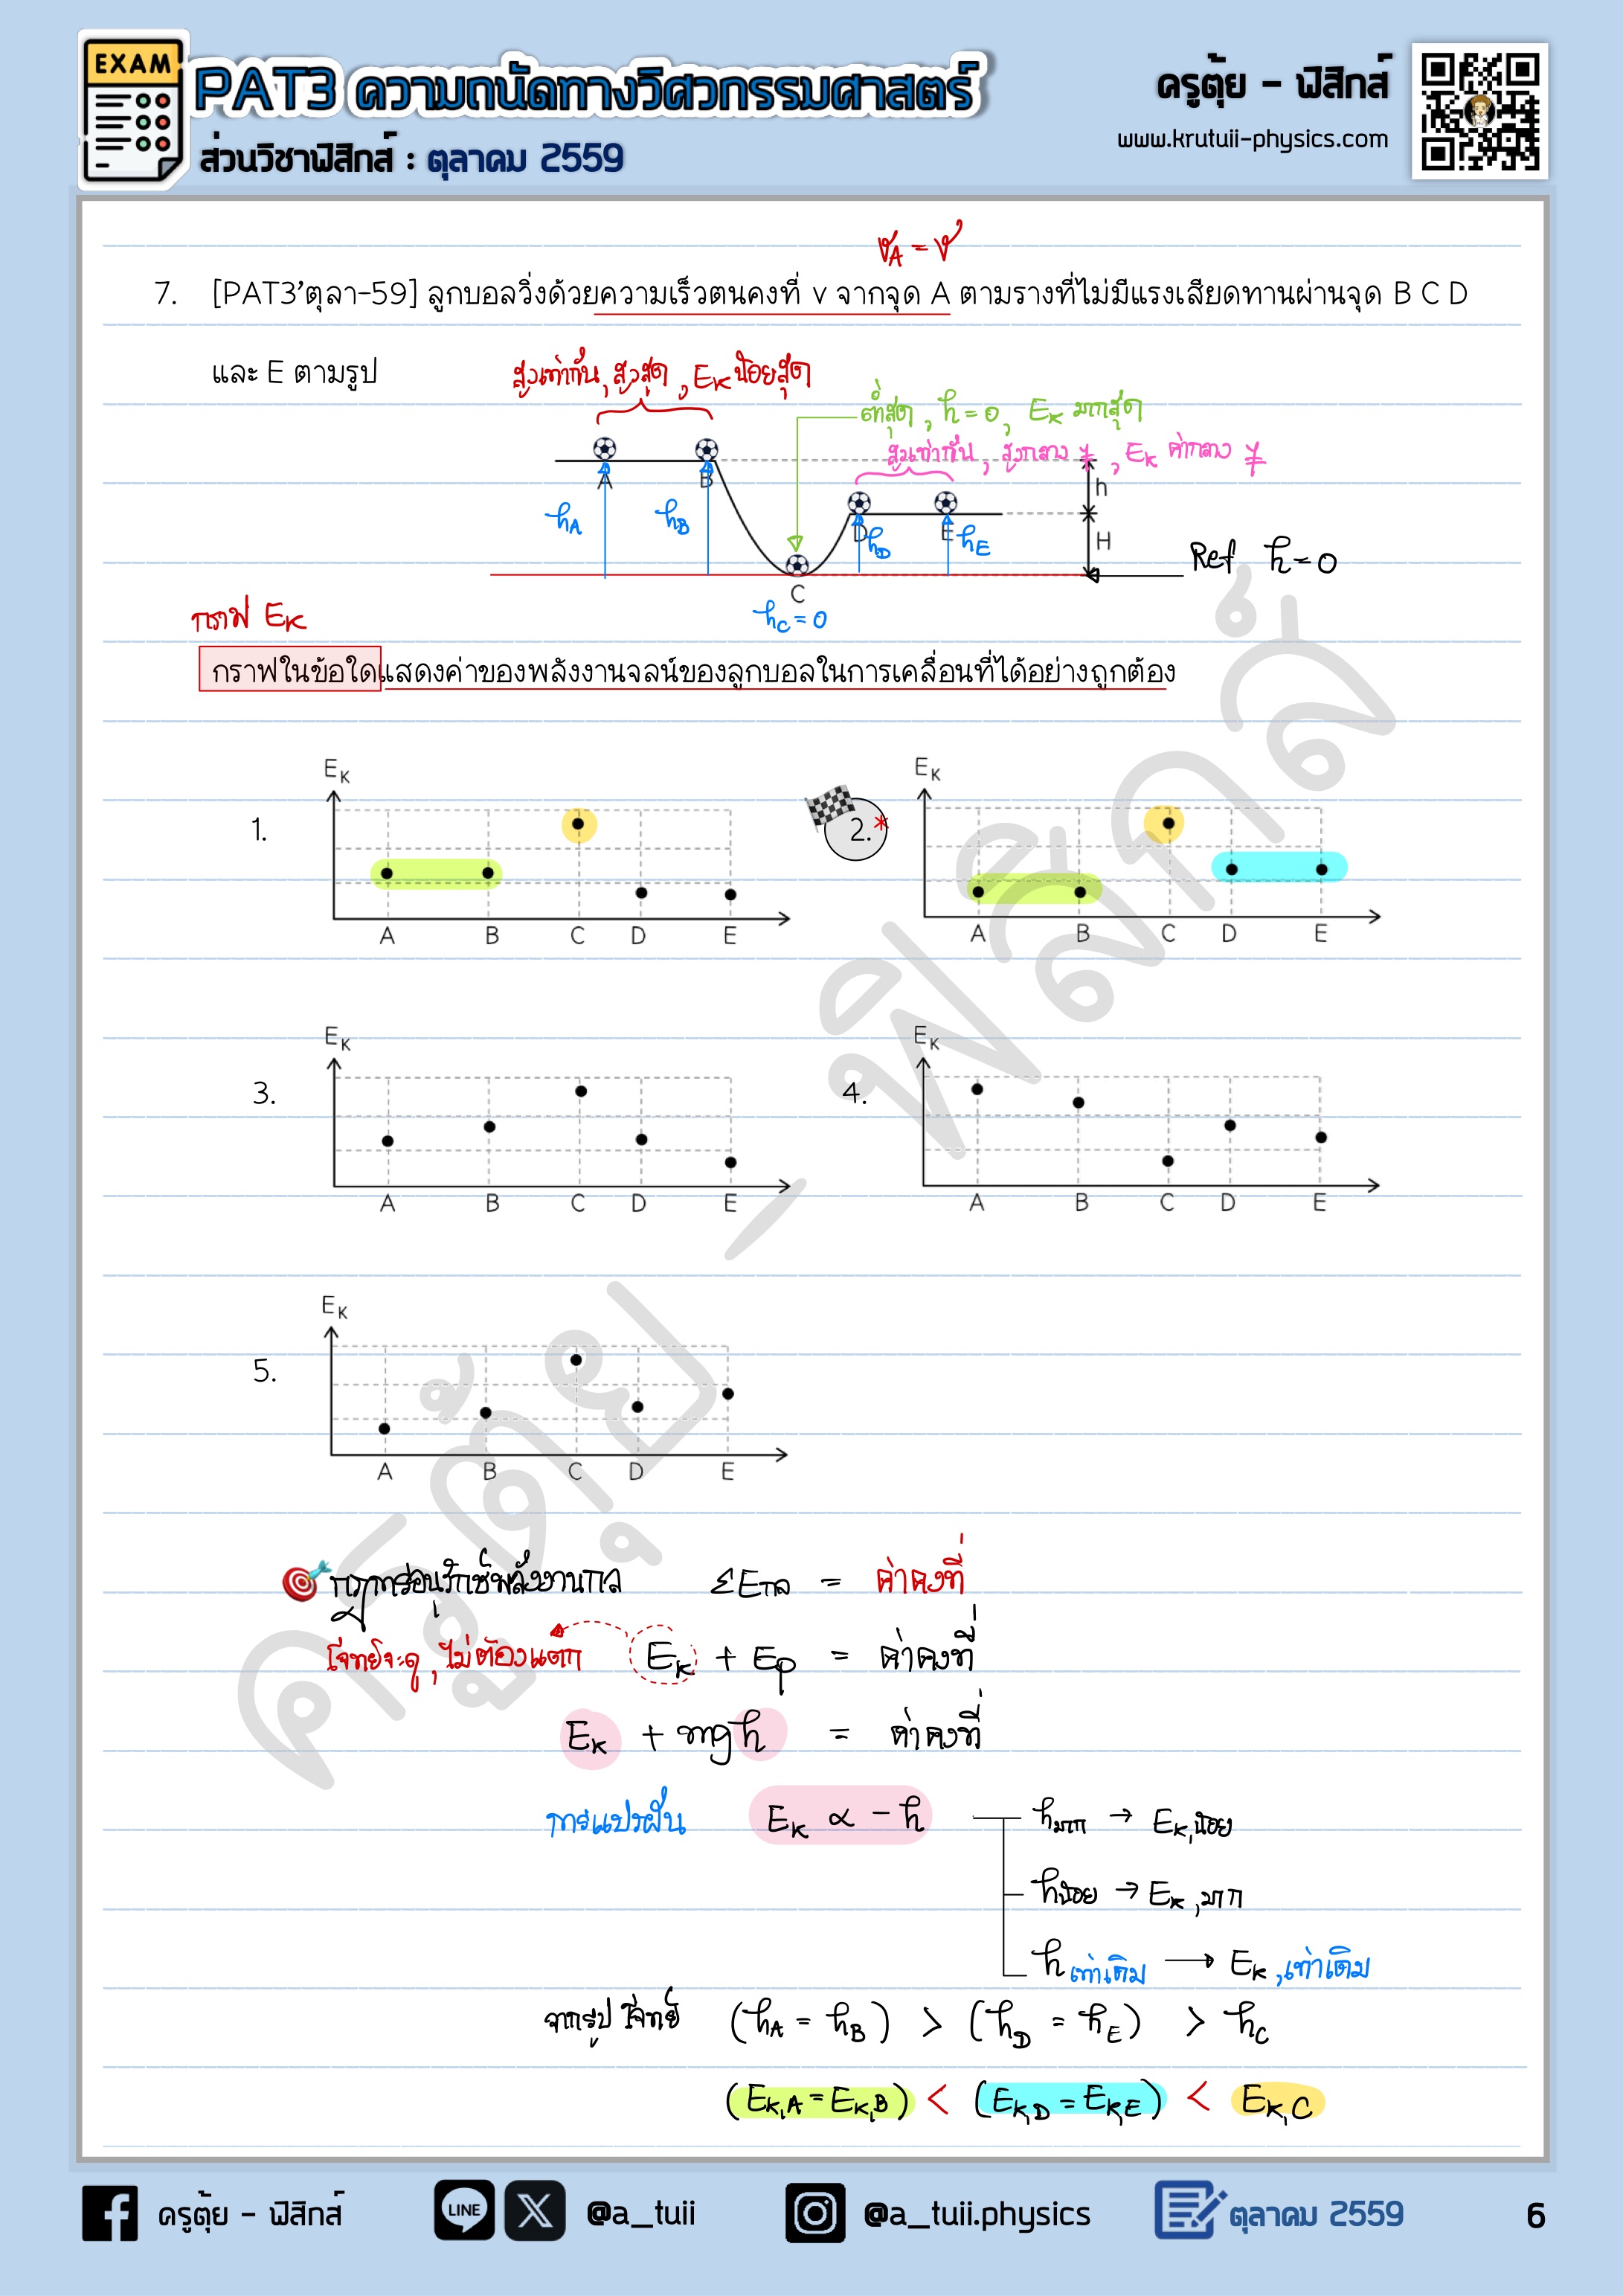 EXAM
PAT3 ความถนัดทางวิศวกรรมศาสตร์
ส่วนวิชาฟิสิกส์ : ตุลาคม 2559
ครูตุ้ย - ฟิสิกส์
www.krutuii-physics.com
v_A = v
7. [PAT3'ตุลา-59] ลูกบอลวิ่งด้วยความเร็วตนคงที่ v จากจุด A ตามรางที่ไม่มีแรงเสียดทานผ่านจุด B C D
และ E ตามรูป
สูงเท่ากัน, สูงสุด, E_K น้อยสุด
ต่ำสุด, h = 0, E_K มากสุด
สูงเท่ากัน, สูงกลาง ๆ, E_K ค่ากลาง ๆ
A B D E h
h_A h_B h_D h_E H
Ref h = 0
C
h_C = 0
กราฟ E_K
กราฟในข้อใดแสดงค่าของพลังงานจลน์ของลูกบอลในการเคลื่อนที่ได้อย่างถูกต้อง
1. E_K A B C D E
2.* E_K A B C D E
3. E_K A B C D E
4. E_K A B C D E
5. E_K A B C D E
กฎการอนุรักษ์พลังงานกล ΣE_กล = ค่าคงที่
โจทย์จะดู, ไม่ต้องแตก E_K + E_p = ค่าคงที่
E_K + mgh = ค่าคงที่
การแปรผัน E_K ∝ - h
h_มาก → E_K,น้อย
h_น้อย → E_K,มาก
h_เท่าเดิม → E_K,เท่าเดิม
จากรูปโจทย์ (h_A = h_B) > (h_D = h_E) > h_C
(E_K,A = E_K,B) < (E_K,D = E_K,E) < E_K,C
ครูตุ้ย - ฟิสิกส์
ครูตุ้ย - ฟิสิกส์
LINE
@a_tuii
@a_tuii.physics
ตุลาคม 2559
6